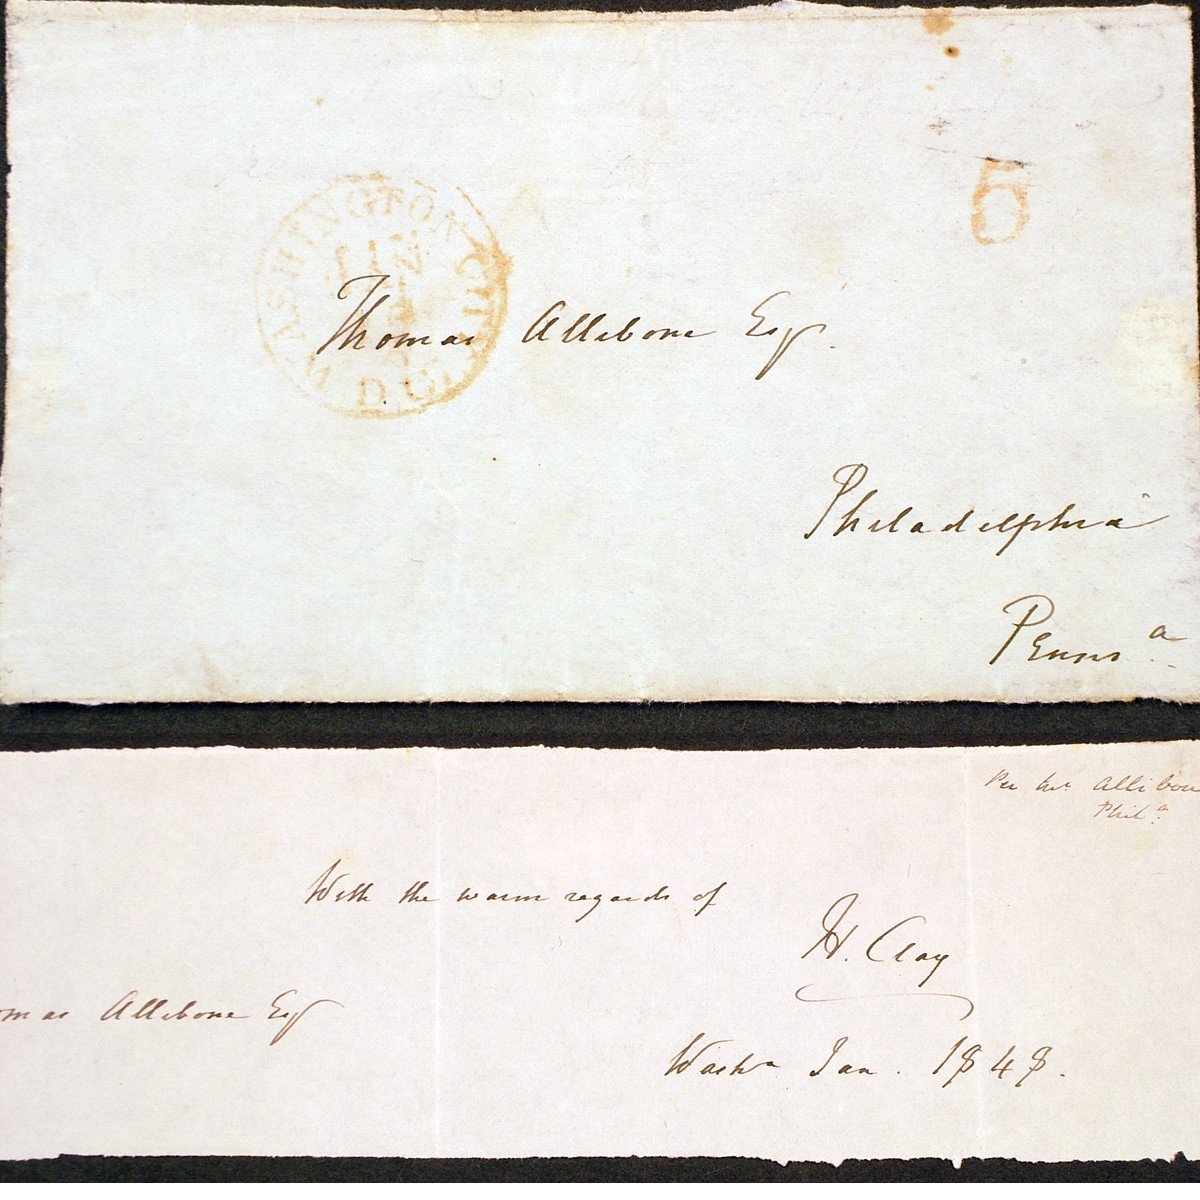 WASHINGTON CITY
D.C.
5
Thomas Allibone Esqr.
Philadelphia
Penns.a
Allibone
Phil.a
With the warm regards of
H. Clay
mas Allibone Esqr
Washn Jan. 1848.